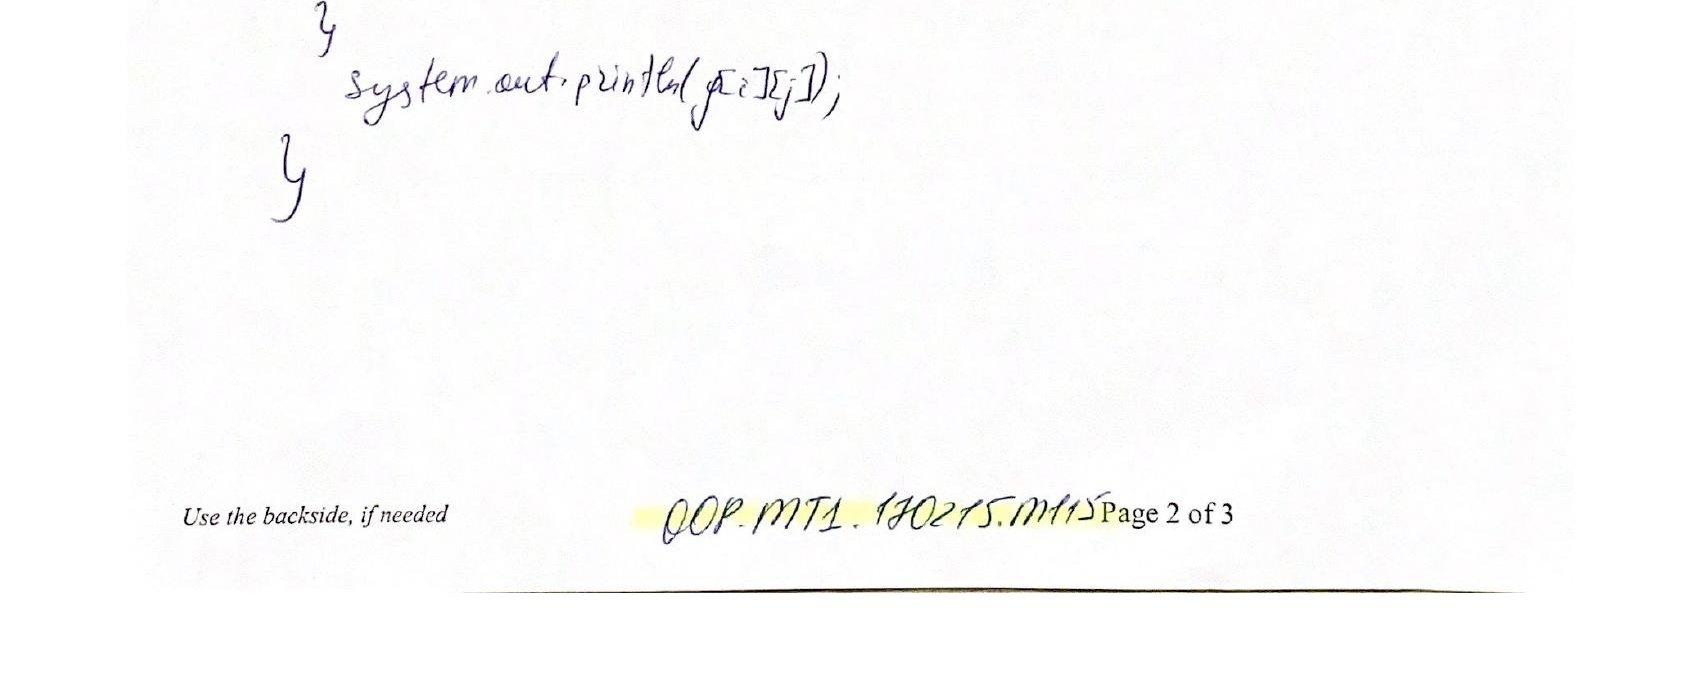 }
system.out.println(g[i][j]);
}
Use the backside, if needed OOP.MT1.170215.M115 Page 2 of 3